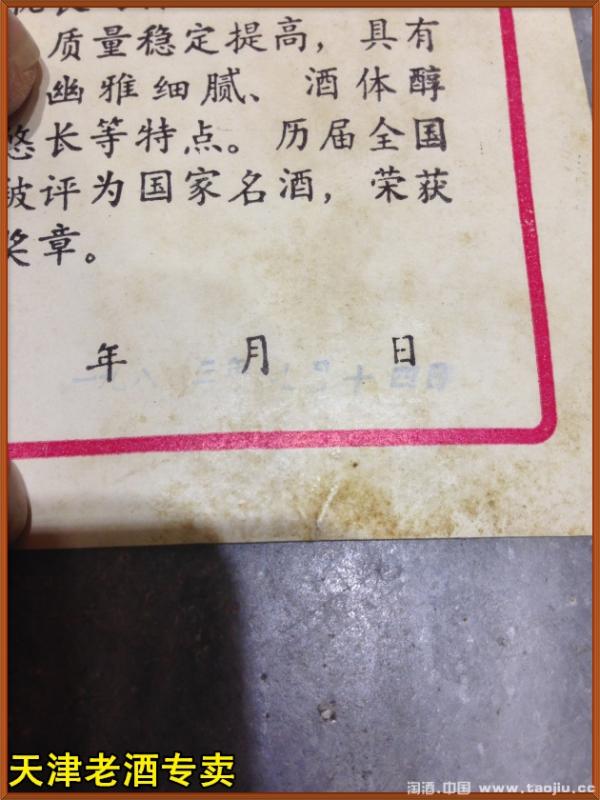 质量稳定提高，具有
幽雅细腻、酒体醇
悠长等特点。历届全国
被评为国家名酒，荣获
奖章。
年 月 日
一九八三年七月十四日
天津老酒专卖
淘酒.中国 www.taojiu.cc